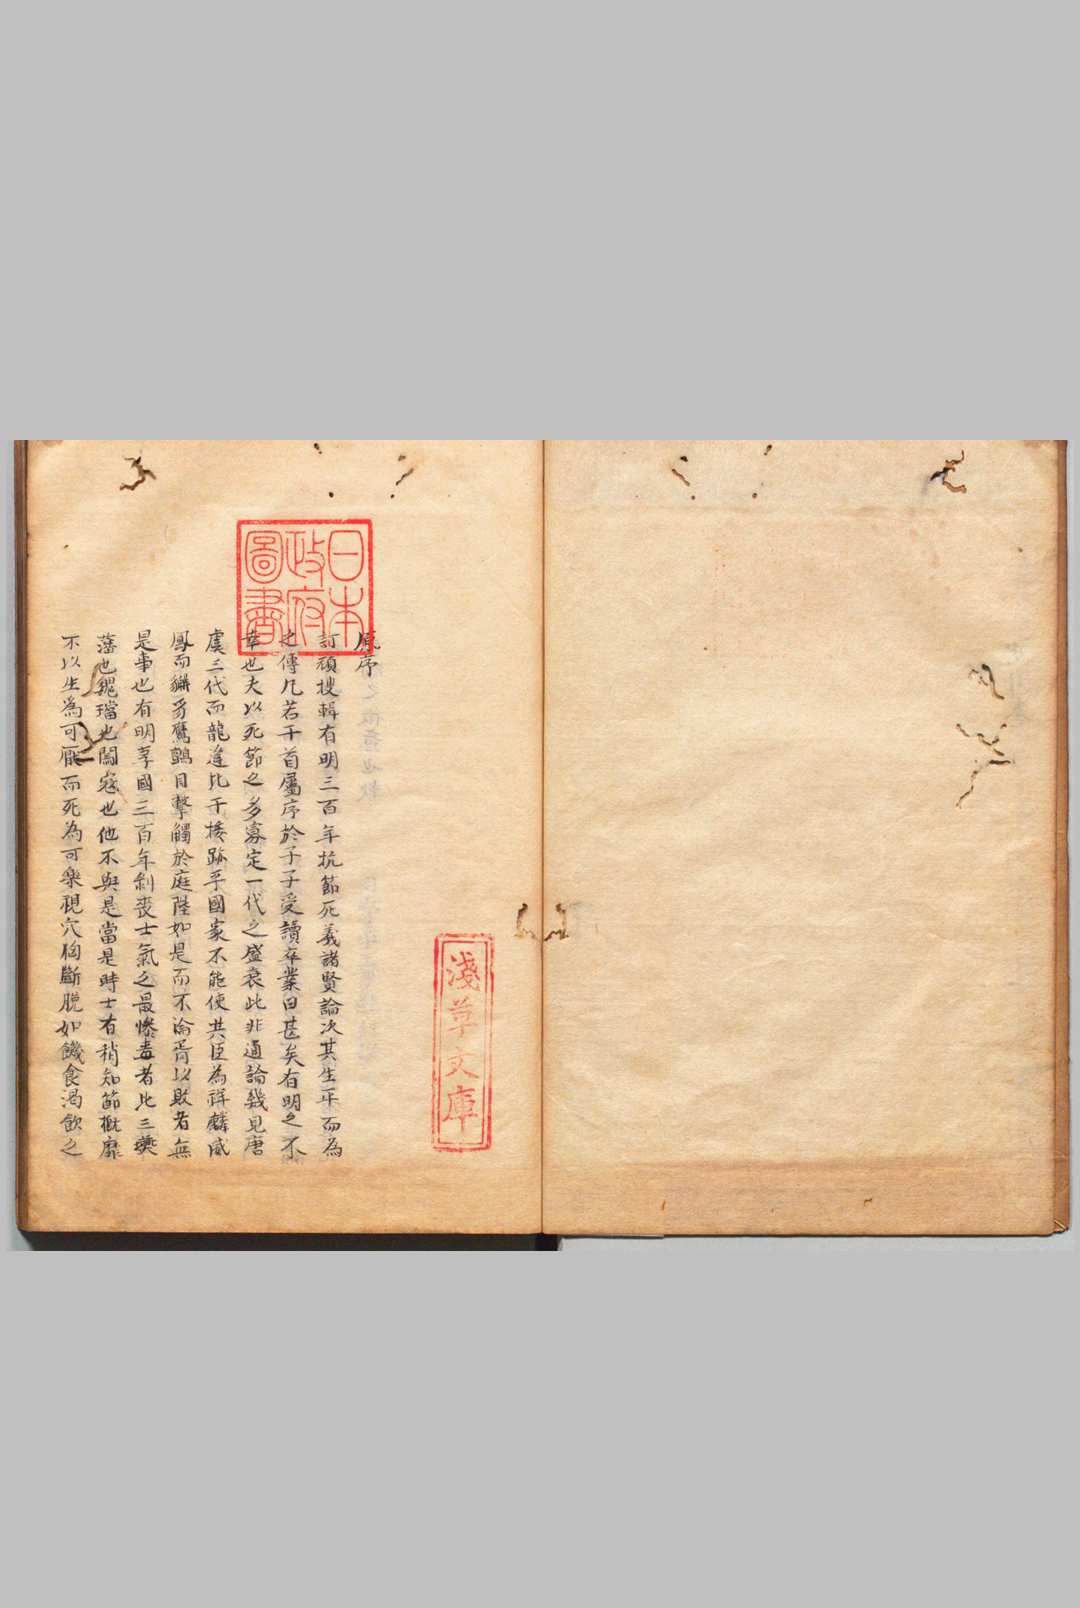 日本
政府
圖書
淺草文庫
原序
訂頑搜輯有明三百年抗節死義諸賢論次其生平而為
之傳凡若干首屬序於予予受讀卒業曰甚矣有明之不
幸也夫以死節之多寡定一代之盛衰此非通論幾見唐
虞三代而龍逄比干接跡乎國家不能使其臣為祥麟威
鳳而豸鷹鸇目擊觸於庭陛如是而不淪胥以敗者無
是事也有明享國三百年剝喪士氣之最慘毒者比三
藩也璫也闖寇也他不與是當是時士有稍知節概靡
不以生為可厭而死為可樂視穴胸斷脰如饑食渴飲之